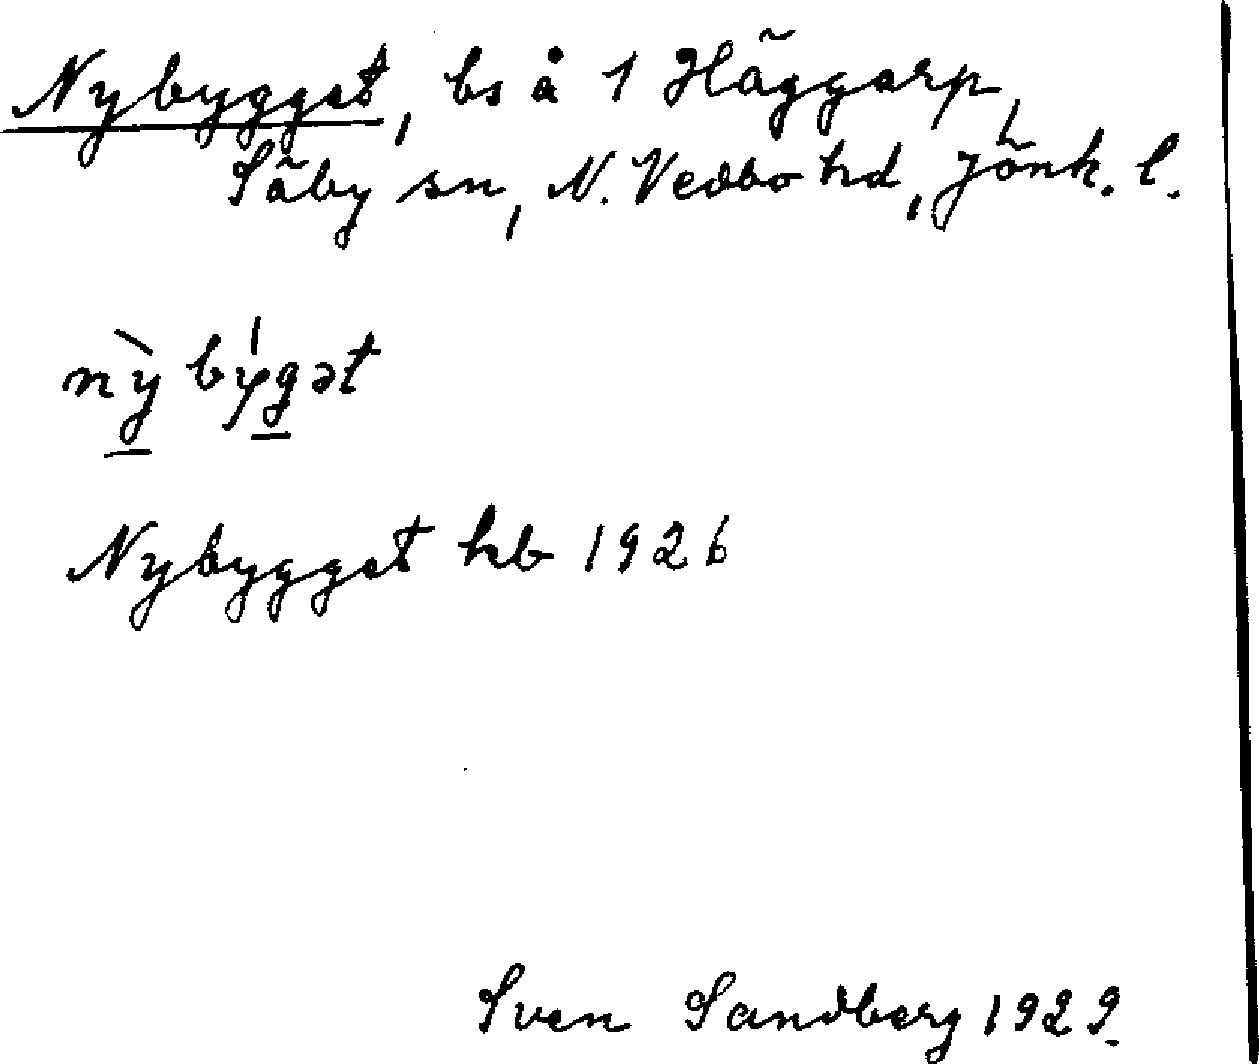 Nybygget, bs å 1 Häggarp,
Säby sn, N. Vedbo hd, Jönk. l.
nỳ býgət
Nybygget kb 1926
Sven Sandberg 1929.